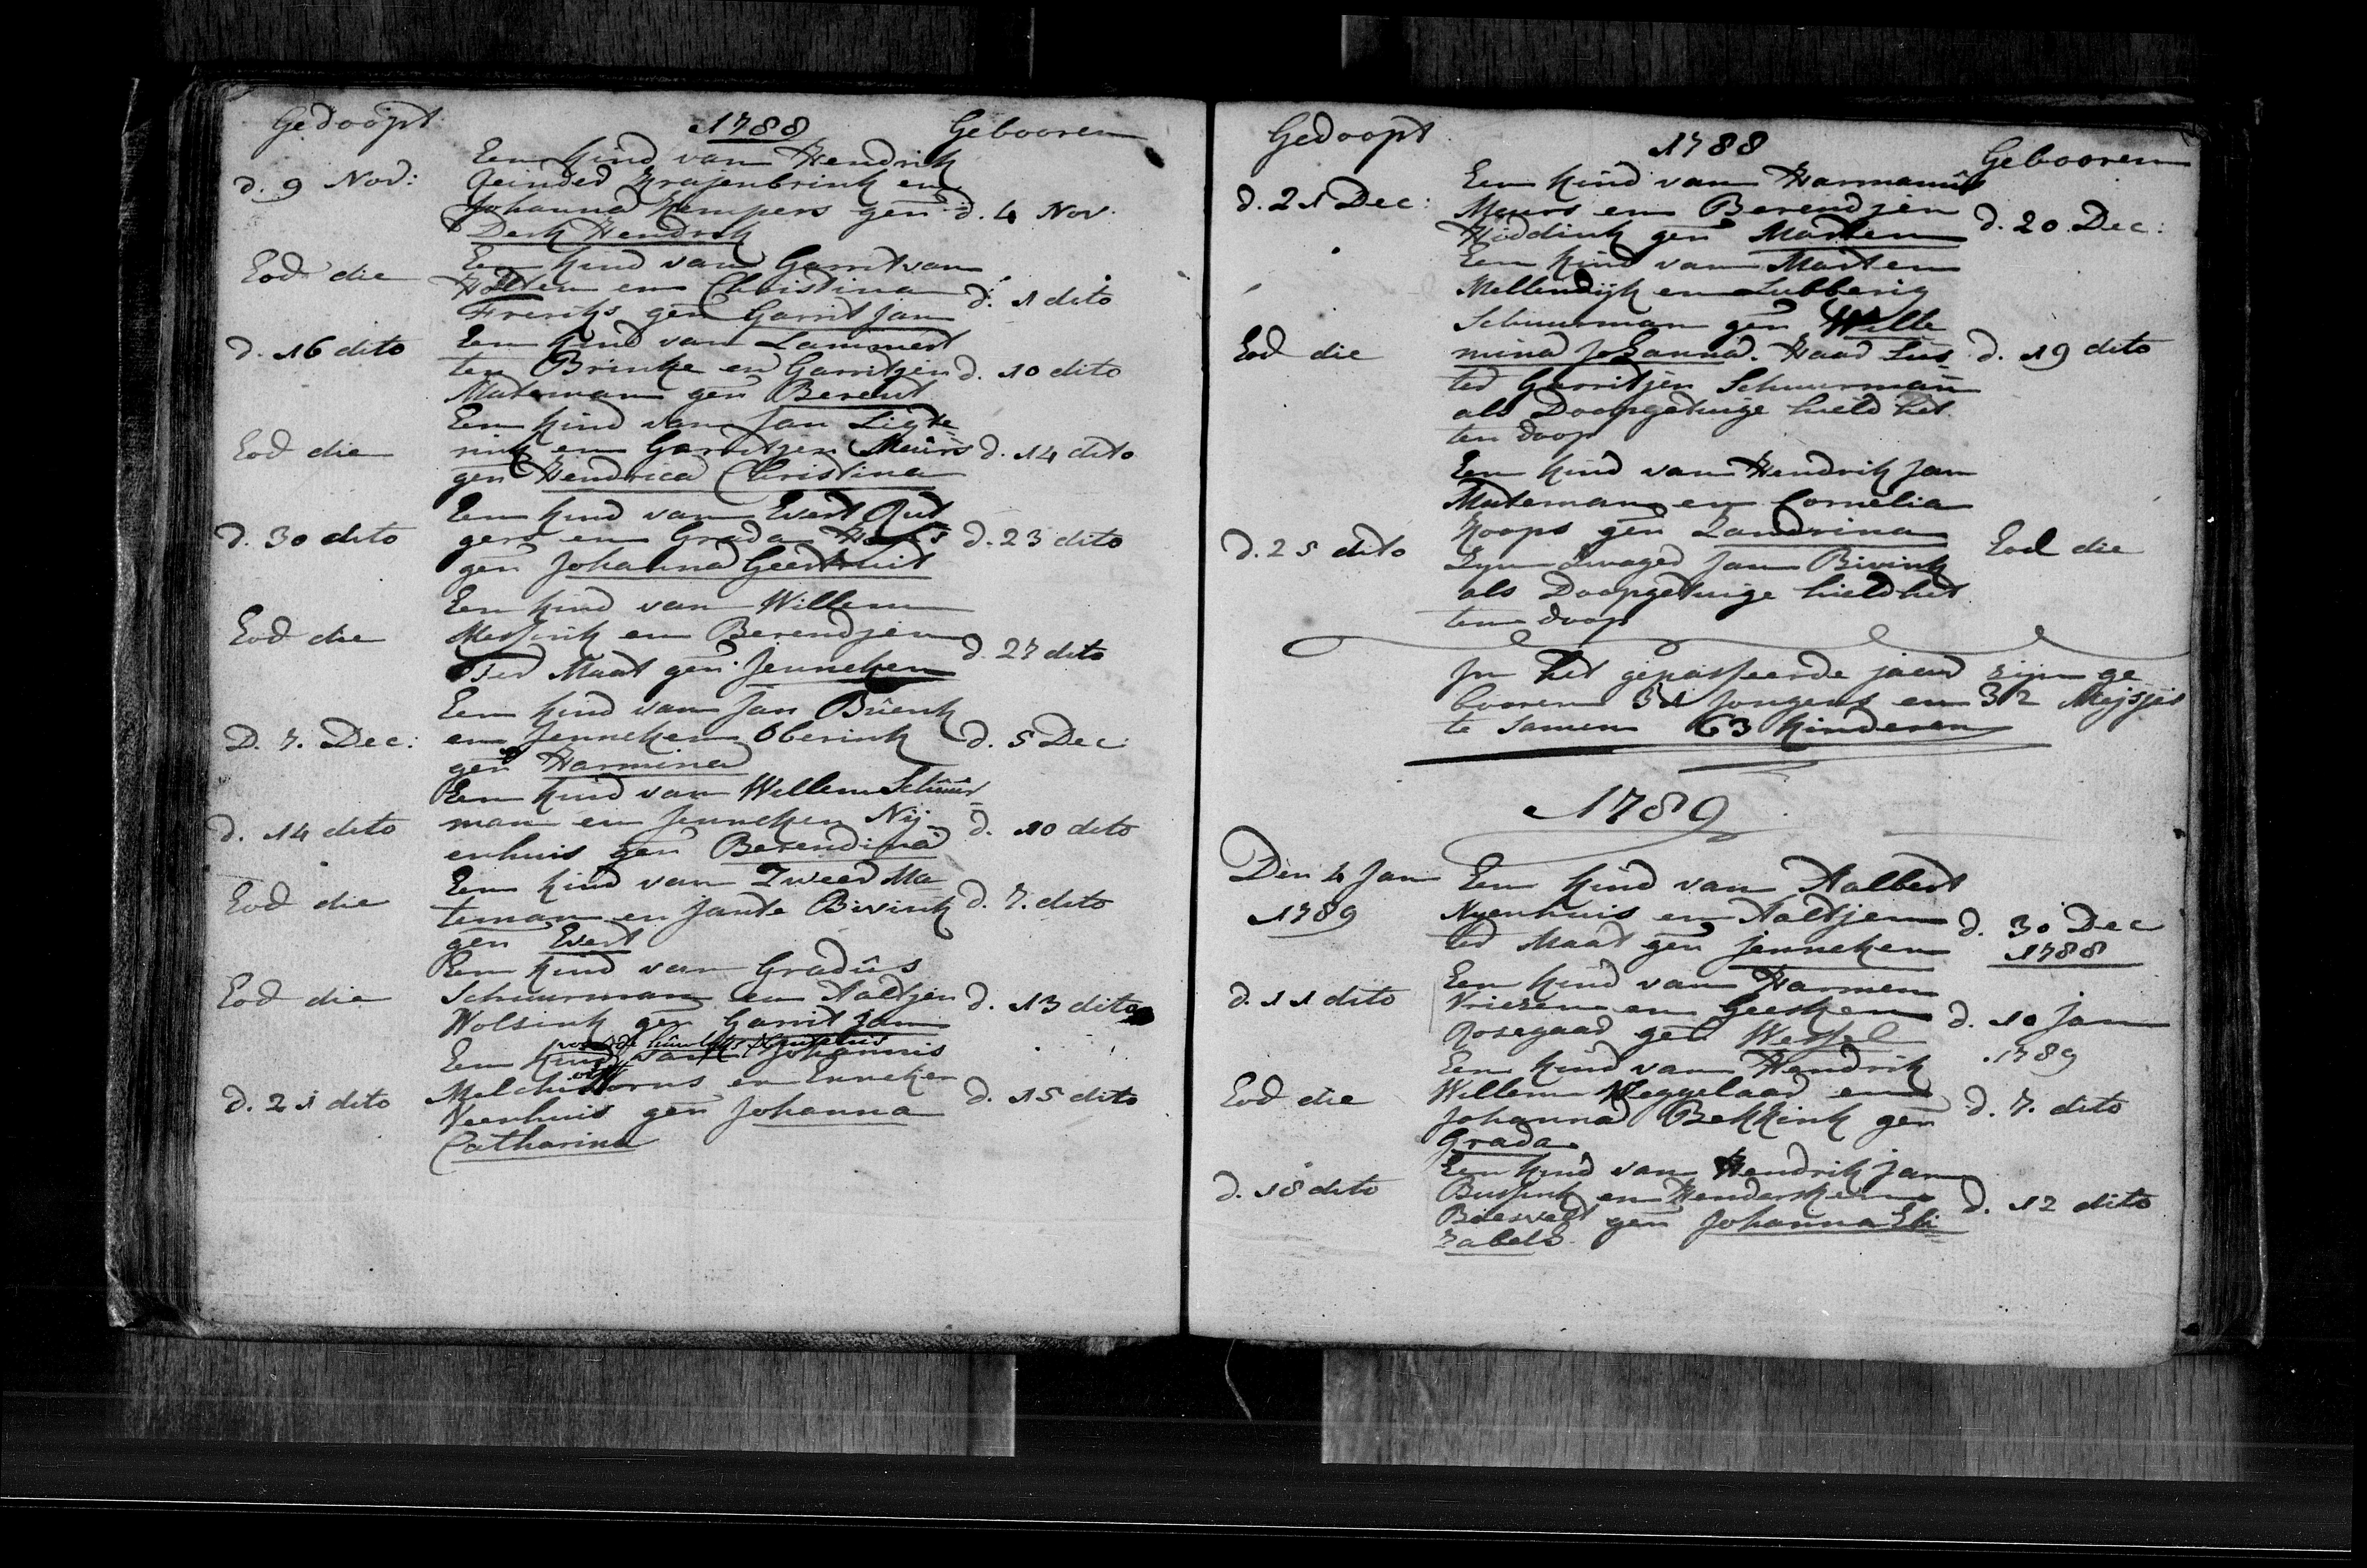 Gedoopt 1788 Gebooren
Een kind van Hendrik
d. 9 Nov: Reinder Krajenbrink en
Johanna Kempers gen d. 4 Nov:
Derk Hendrik
Een kind van Garrit van
Eod die Holten en Christina d. 1 dito
Freriks gen Garrit Jan
Een kind van Lammert
d. 16 dito ten Brinke en Garritjen d. 10 dito
Mateman gen Berent
Een kind van Jan Ligte
Eod die rink en Garritjen Meurs d. 14 dito
gen Hendrica Christina
Een kind van Evert Rut
d. 30 dito gers en Grada d. 23 dito
gen Johanna Geertruit
Een kind van Willem
Eod die Messink en Berendjen
Ter Maat gen Jenneken d. 27 dito
Een kind van Jan Buenk
D. 7. Dec: en Jenneken Obbrink d. 5 Dec:
gen Harmina
Een kind van Willem Schuur
d. 14 dito man en Jenneken Nij- d. 10 dito
enhuis gen Berendina
Een kind van Zweer Ma
Eod die teman en Jante Bivink d. 7. dito
gen Evert
Een kind van Gradus
Eod die Schuurman en Aaltjen d. 13 dito
Wolsink gen Garrit Jan
Een kind van Johannis
d. 21 dito Melchi en Enneken d. 15 dito
Veenhuis gen Johanna
Catharina
Gedoopt 1788 Gebooren
Een kind van Harmanus
d. 21 Dec: Meurs en Berendjen d. 20 Dec:
Hiddink gen Marten
Een kind van Marten
Mellendijk en Lubberig
Schuurman gen Wille
Eod die mina Johanna. Haar Sus- d. 19 dito
ter Garritjen Schuurman
als Doopgetuige hield het
ten doop
Een kind van Hendrik Jan
Mateman en Cornelia
Koops gen Zandrina Eod die
d. 25 dito Zijn Zwager Jan Bivink
als Doopgetuige hield het
ten doop
In het gepasseerde jaar zijn ge
booren 31 Jongens en 32 Mejsjes
te samen 63 kinderen
1789
Den 4 Jan Een kind van Aalbert
1789 Nyenhuis en Aaltjen d. 30 Dec
ter Maat gen Jenneken 1788
Een kind van Harmen
d. 11 dito Vriezen en Geesken d. 10 Jan
Rosegaar gen Wessel 1789
Een kind van Hendrik
Eod die Willem Weggelaar en d. 7. dito
Johanna Bekkink gen
Grada
Een kind van Hendrik Jan
d. 18 dito Bussink en Henderske d. 12 dito
Boesvelt gen Johanna Eli
zabeth